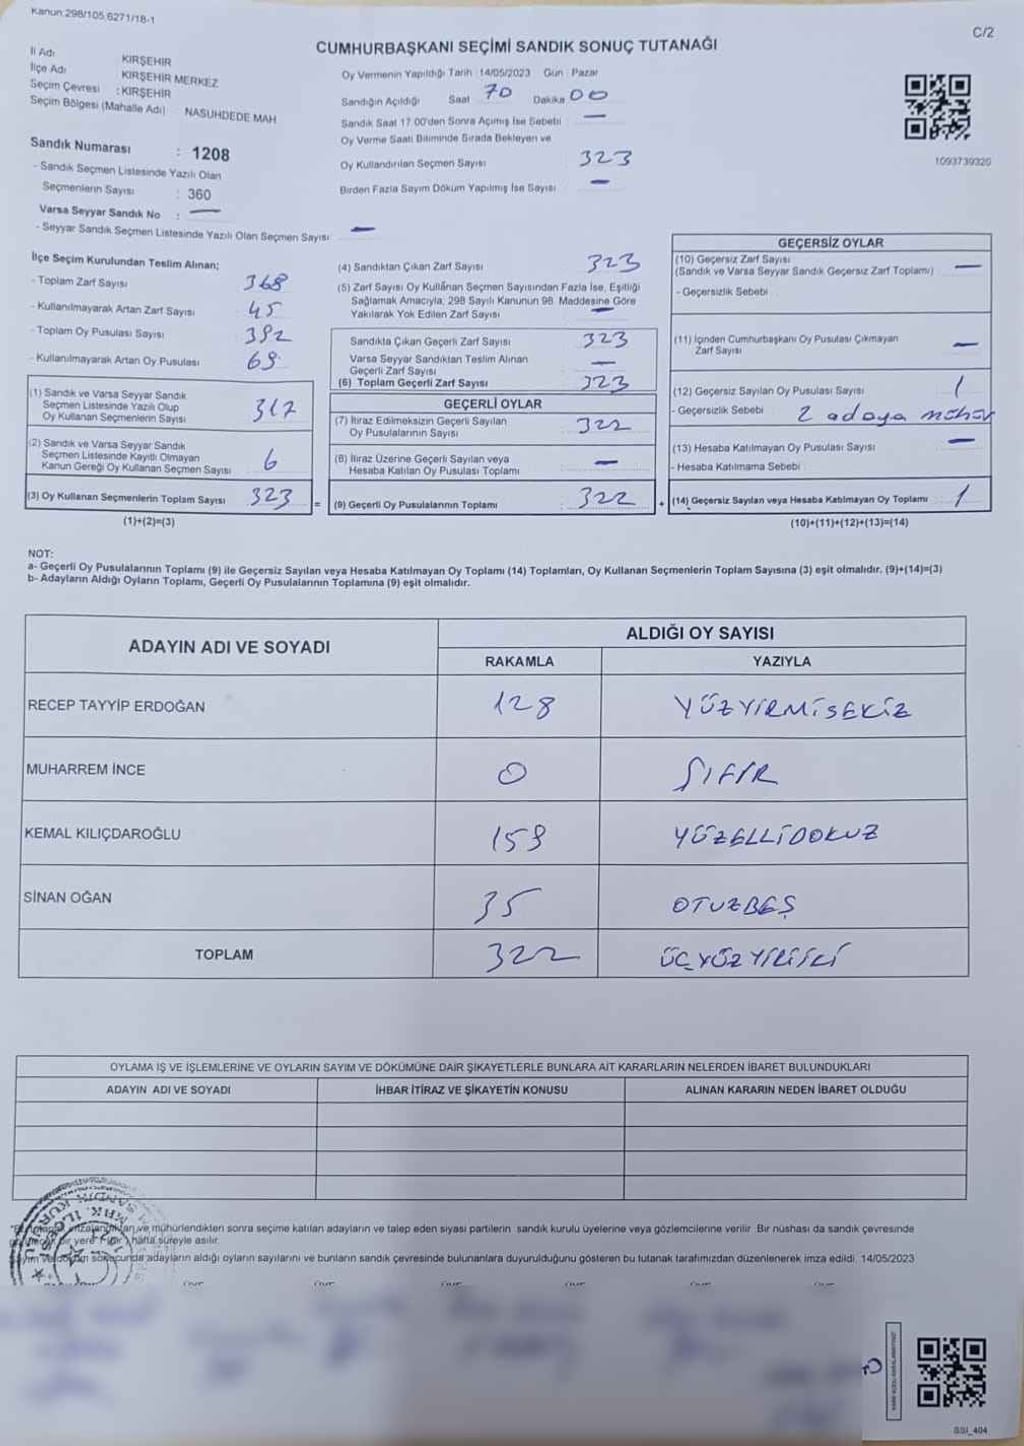 Kanun:298/105,6271/18-1
C/2
CUMHURBAŞKANI SEÇİMİ SANDIK SONUÇ TUTANAĞI
İl Adı KIRŞEHİR
İlçe Adı : KIRŞEHİR MERKEZ
Seçim Çevresi : KIRŞEHİR
Seçim Bölgesi (Mahalle Adı) NASUHDEDE MAH
Sandık Numarası : 1208
- Sandık Seçmen Listesinde Yazılı Olan
Seçmenlerin Sayısı : 360
Varsa Seyyar Sandık No : —
- Seyyar Sandık Seçmen Listesinde Yazılı Olan Seçmen Sayısı —
Oy Vermenin Yapıldığı Tarih :14/05/2023 Gün : Pazar
Sandığın Açıldığı Saat 70 Dakika 00
Sandık Saat 17:00'den Sonra Açımış İse Sebebi —
Oy Verme Saati Bitiminde Sırada Bekleyen ve
Oy Kullandırılan Seçmen Sayısı 323
Birden Fazla Sayım Döküm Yapılmış İse Sayısı —
1093739320
İlçe Seçim Kurulundan Teslim Alınan;
- Toplam Zarf Sayısı 368
- Kullanılmayarak Artan Zarf Sayısı 45
- Toplam Oy Pusulası Sayısı 392
- Kullanılmayarak Artan Oy Pusulası 69
(1) Sandık ve Varsa Seyyar Sandık
Seçmen Listesinde Yazılı Olup
Oy Kullanan Seçmenlerin Sayısı 317
(2) Sandık ve Varsa Seyyar Sandık
Seçmen Listesinde Kayıtlı Olmayan
Kanun Gereği Oy Kullanan Seçmen Sayısı 6
(3) Oy Kullanan Seçmenlerin Toplam Sayısı 323 =
(1)+(2)=(3)
(4) Sandıktan Çıkan Zarf Sayısı 323
(5) Zarf Sayısı Oy Kullanan Seçmen Sayısından Fazla İse, Eşitliği
Sağlamak Amacıyla, 298 Sayılı Kanunun 98. Maddesine Göre
Yakılarak Yok Edilen Zarf Sayısı —
Sandıkta Çıkan Geçerli Zarf Sayısı 323
Varsa Seyyar Sandıktan Teslim Alınan
Geçerli Zarf Sayısı —
(6) Toplam Geçerli Zarf Sayısı 323
GEÇERLİ OYLAR
(7) İtiraz Edilmeksizin Geçerli Sayılan
Oy Pusulalarının Sayısı 322
(8) İtiraz Üzerine Geçerli Sayılan veya
Hesaba Katılan Oy Pusulası Toplamı —
(9) Geçerli Oy Pusulalarının Toplamı 322 +
GEÇERSİZ OYLAR
(10) Geçersiz Zarf Sayısı —
(Sandık ve Varsa Seyyar Sandık Geçersiz Zarf Toplamı)
- Geçersizlik Sebebi
(11) İçinden Cumhurbaşkanı Oy Pusulası Çıkmayan
Zarf Sayısı —
(12) Geçersiz Sayılan Oy Pusulası Sayısı 1
- Geçersizlik Sebebi 2 adaya mühür
(13) Hesaba Katılmayan Oy Pusulası Sayısı —
- Hesaba Katılmama Sebebi
(14) Geçersiz Sayılan veya Hesaba Katılmayan Oy Toplamı 1
(10)+(11)+(12)+(13)=(14)
NOT:
a- Geçerli Oy Pusulalarının Toplamı (9) ile Geçersiz Sayılan veya Hesaba Katılmayan Oy Toplamı (14) Toplamları, Oy Kullanan Seçmenlerin Toplam Sayısına (3) eşit olmalıdır. (9)+(14)=(3)
b- Adayların Aldığı Oyların Toplamı, Geçerli Oy Pusulalarının Toplamına (9) eşit olmalıdır.
ADAYIN ADI VE SOYADI
ALDIĞI OY SAYISI
RAKAMLA YAZIYLA
RECEP TAYYİP ERDOĞAN 128 YÜZYİRMİSEKİZ
MUHARREM İNCE 0 SIFIR
KEMAL KILIÇDAROĞLU 159 YÜZELLİDOKUZ
SİNAN OĞAN 35 OTUZBEŞ
TOPLAM 322
OYLAMA İŞ VE İŞLEMLERİNE VE OYLARIN SAYIM VE DÖKÜMÜNE DAİR ŞİKAYETLERLE BUNLARA AİT KARARLARIN NELERDEN İBARET BULUNDUKLARI
ADAYIN ADI VE SOYADI İHBAR İTİRAZ VE ŞİKAYETİN KONUSU ALINAN KARARIN NEDEN İBARET OLDUĞU
mühürlendikten sonra seçime katılan adayların ve talep eden siyasi partilerin sandık kurulu üyelerine veya gözlemcilerine verilir. Bir nüshası da sandık çevresinde
bir yere hafta süreyle asılır.
adayların aldığı oyların sayılarını ve bunların sandık çevresinde bulunanlara duyurulduğunu gösteren bu tutanak tarafımızdan düzenlenerek imza edildi. 14/05/2023
SSI_404